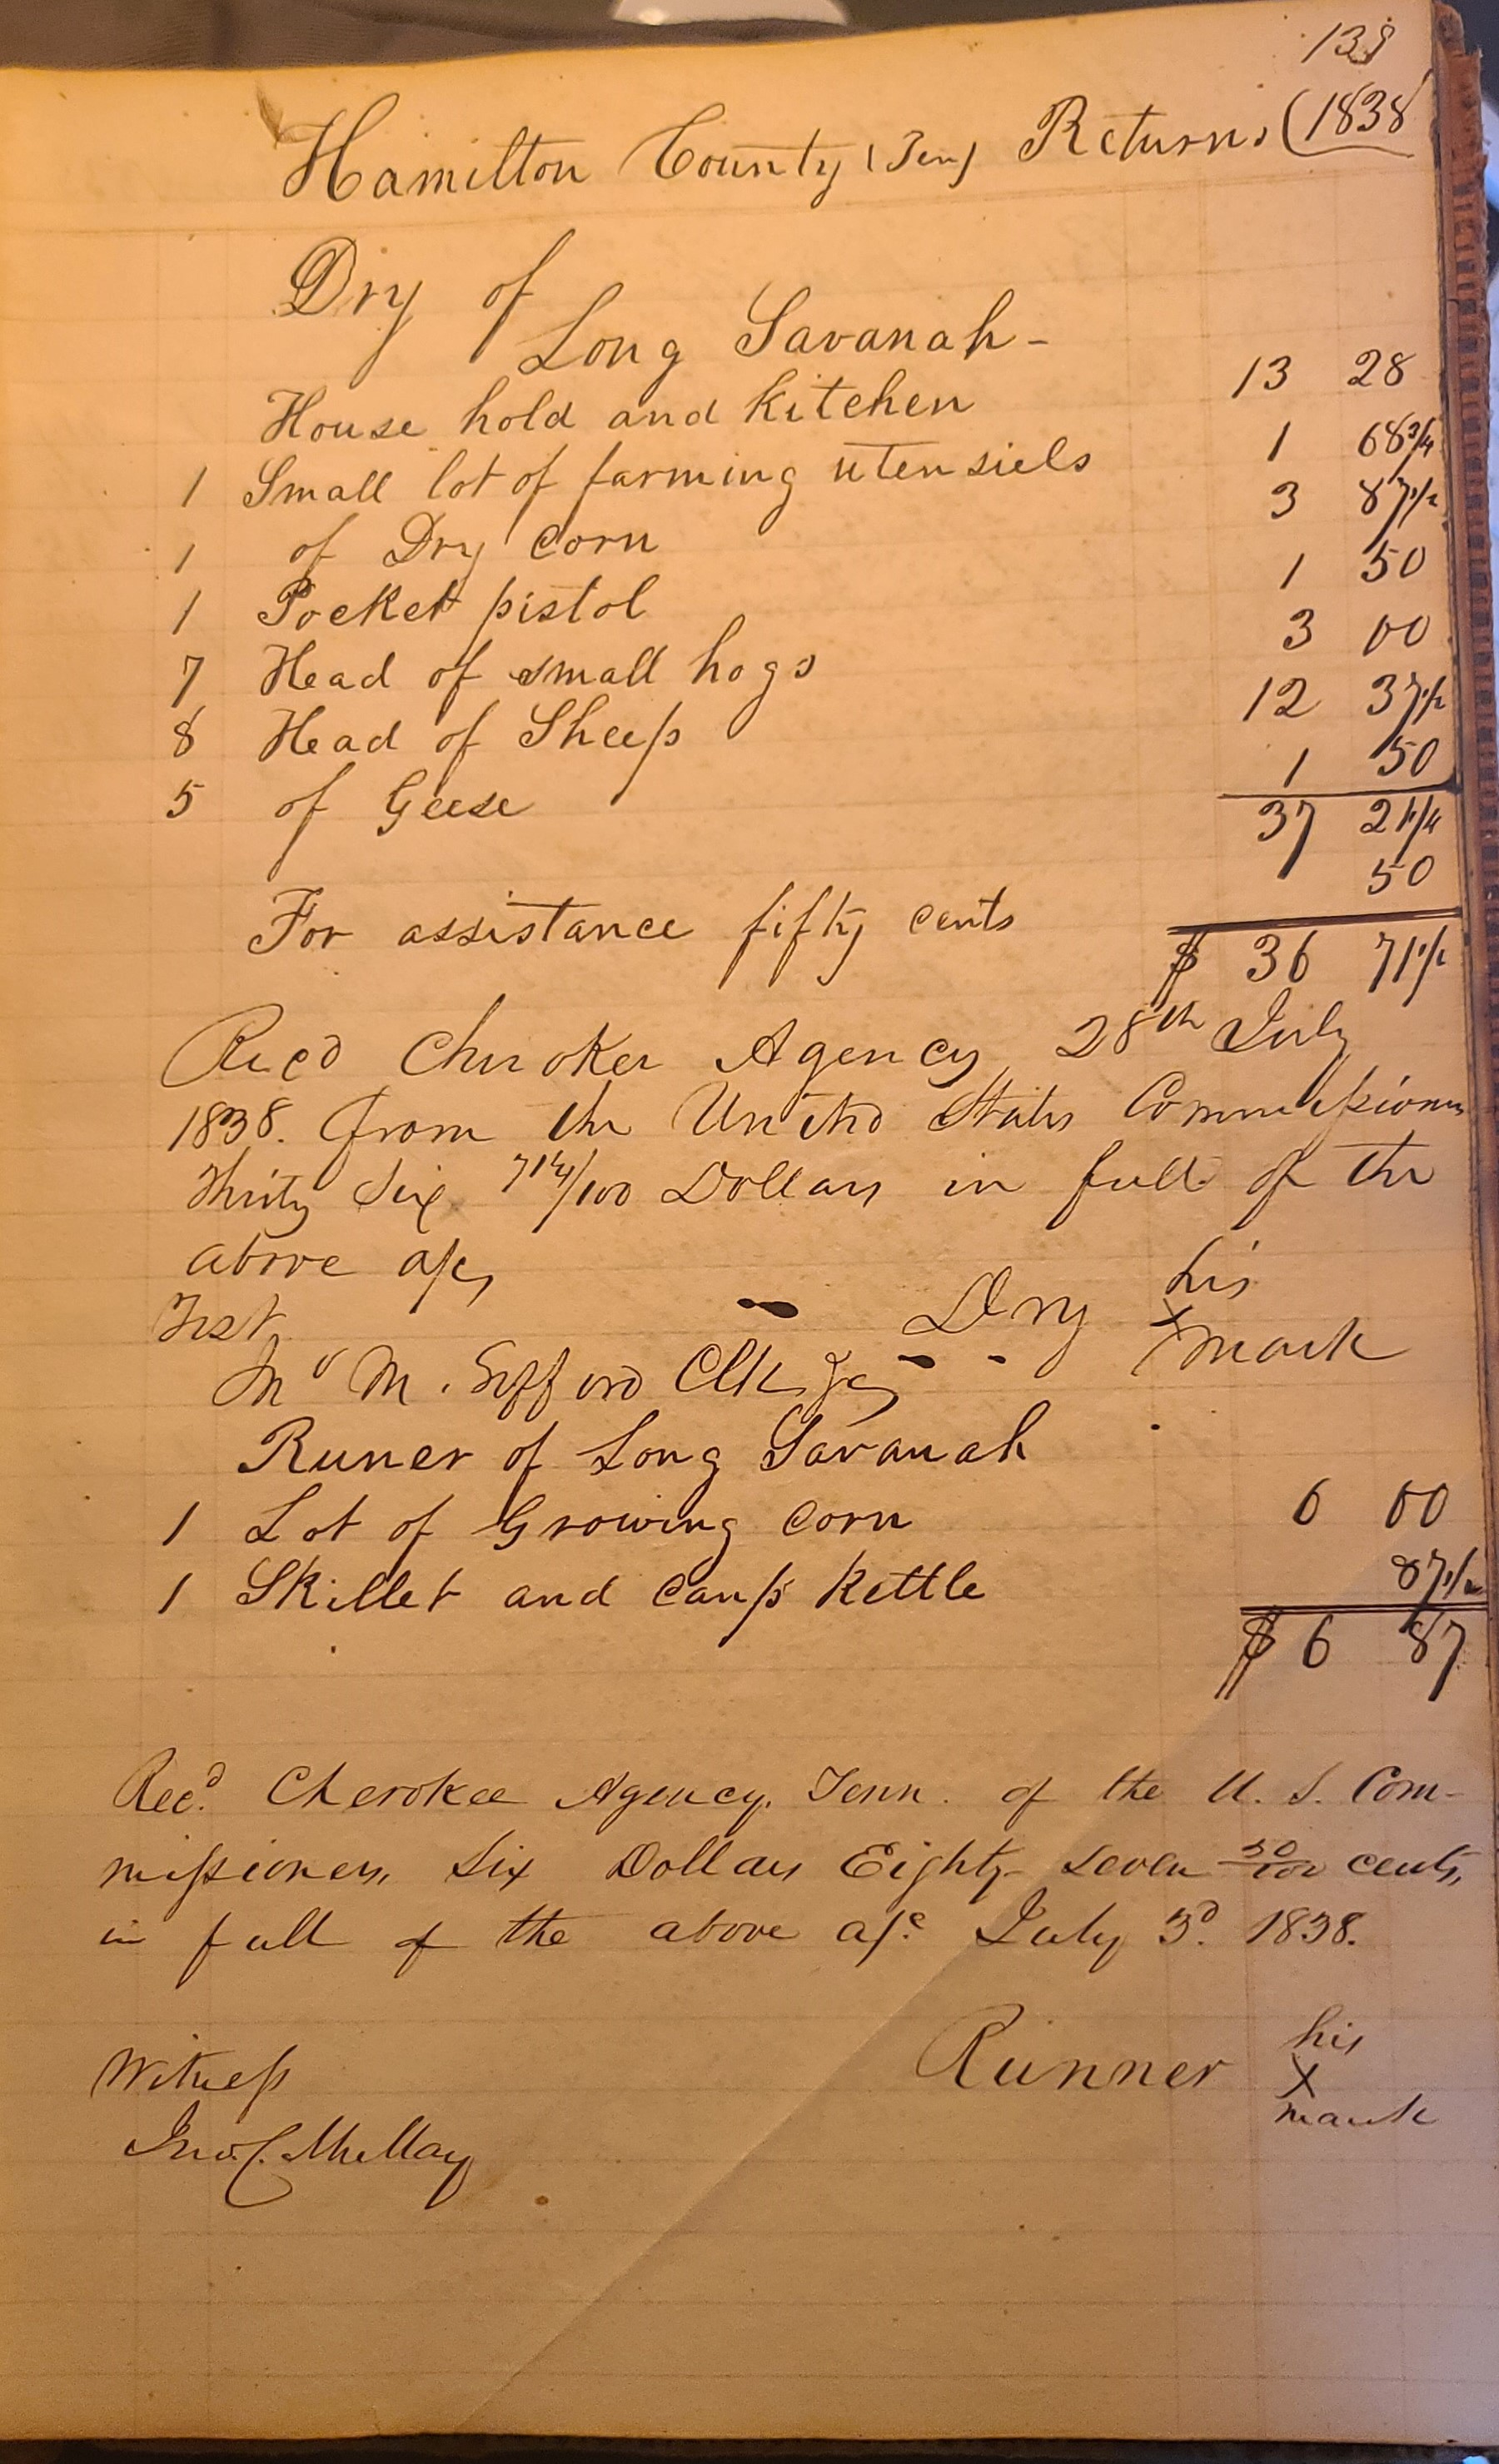 139
Hamilton County (Ten) Returns (1838
Dry of
Long Savanah -
House hold and Kitchen 13 28
1 Small lot of farming utensiels 1 68 3/4
1 of Dry Corn 3 87 1/2
1 Pocket pistol 1 50
7 Head of small hogs 3 00
8 Head of Sheep 12 37 1/2
5 of Geese 1 50
37 21 1/4
50
For assistance fifty cents
$ 36 71 1/2
Recd Cherokee Agency 28th July
1838. from the United States Commissioners
Thirty Six 71 1/4/100 Dollars in full of the
above a/c,
Test, Dry his
x
mark
M. Clk
Runer of Long Savanah
1 Lot of Growing Corn 6 00
1 Skillet and Camp Kettle 87 1/2
$ 6 87
Recd. Cherokee Agency, Tenn. of the U. S. Com-
missioners, Six Dollars Eighty-seven 50/100 cents,
in full of the above a/c. July 3d. 1838.
Witness Runner his
X
mark
Jno. C.